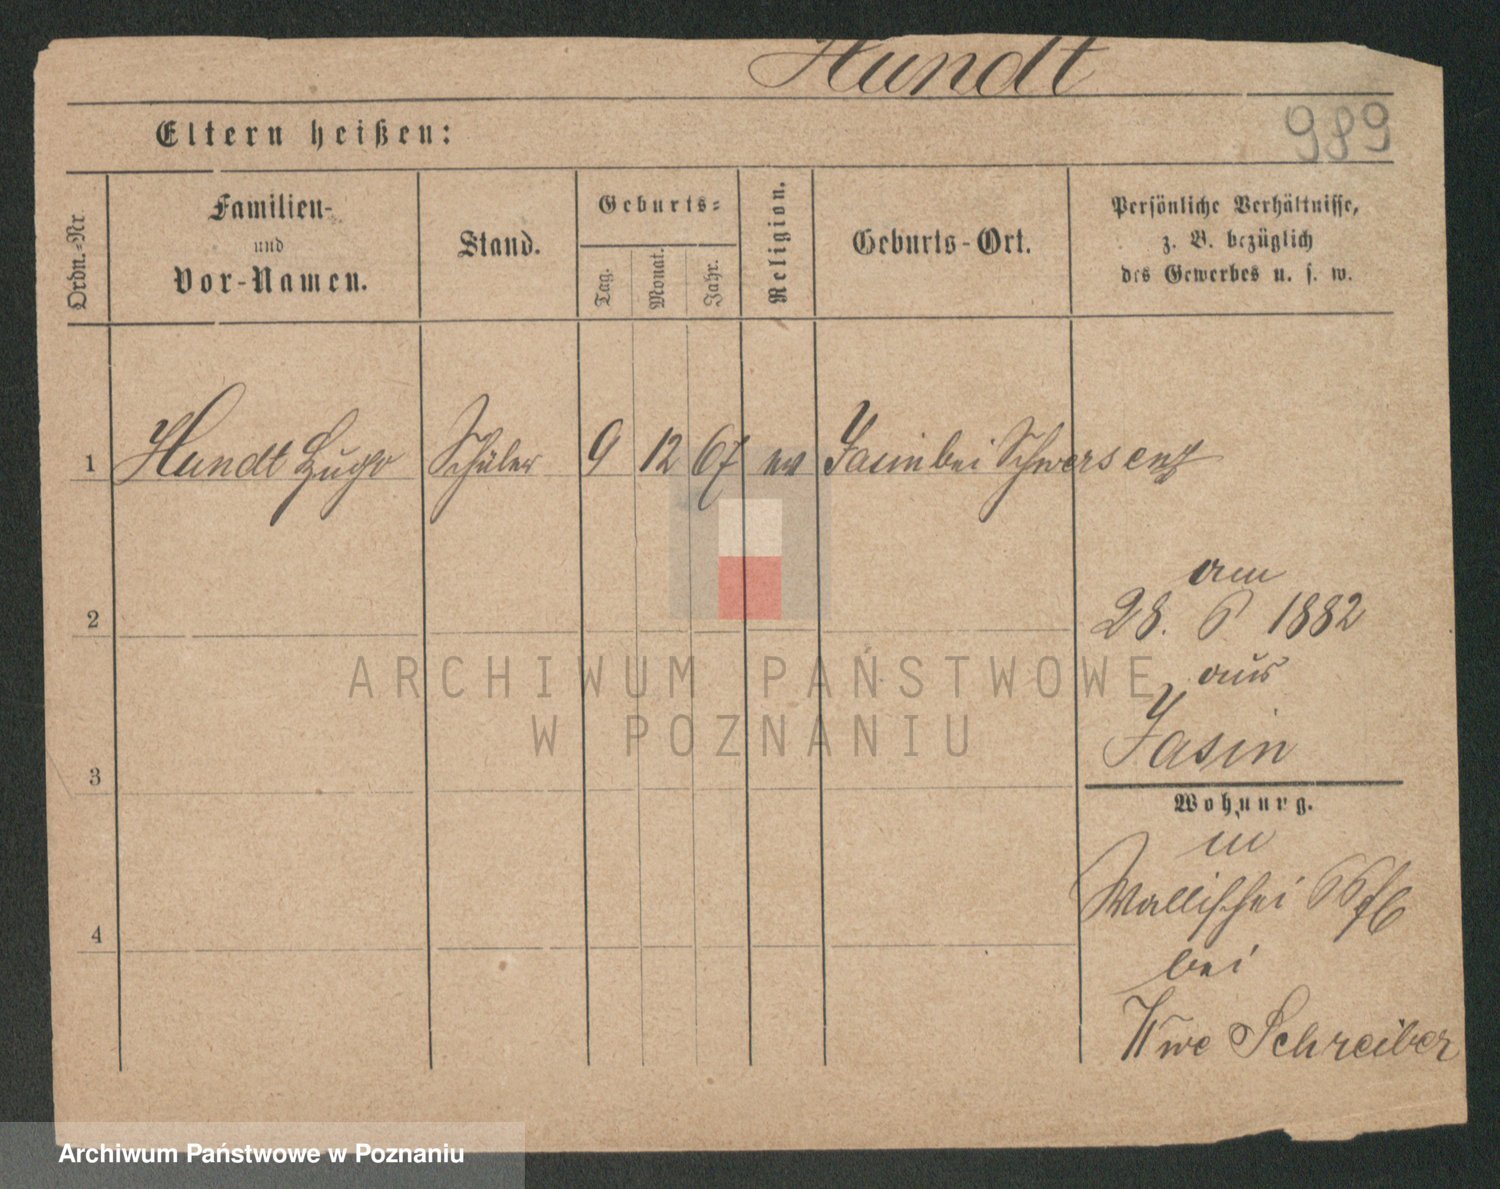 Hundt
989
Eltern heißen:
Ordn.-Nr
Familien-
und
Vor-Namen.
Stand.
Geburts-
Tag.
Monat.
Jahr.
Religion.
Geburts-Ort.
Persönliche Verhältnisse,
z. B. bezüglich
des Gewerbes u. s. w.
1 Hundt Hugo Schüler 9 12 67 ev Jasin bei Schwersenz
am
2
28. 6 1882
aus
Jasin
3
Wohnung.
in
Wallischei
4
bei
Wwe Schreiber
ARCHIWUM PAŃSTWOWE
W POZNANIU
Archiwum Państwowe w Poznaniu